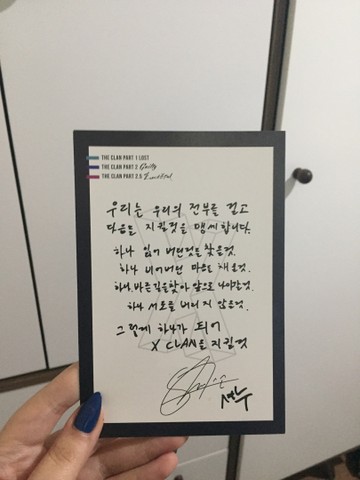 THE CLAN PART 1 LOST
THE CLAN PART 2 Guilty
THE CLAN PART 2.5 Beautiful
우리는 우리의 전부를 걸고
다음을 지킬것을 맹세합니다.
하나 잃어버린것을 찾을것.
하나 비어버린 마음을 채울것.
하나 바른길을 찾아 앞으로 나아갈것.
하나 서로를 버리지 않을것.
그렇게 하나가 되어
X CLAN을 지킬것